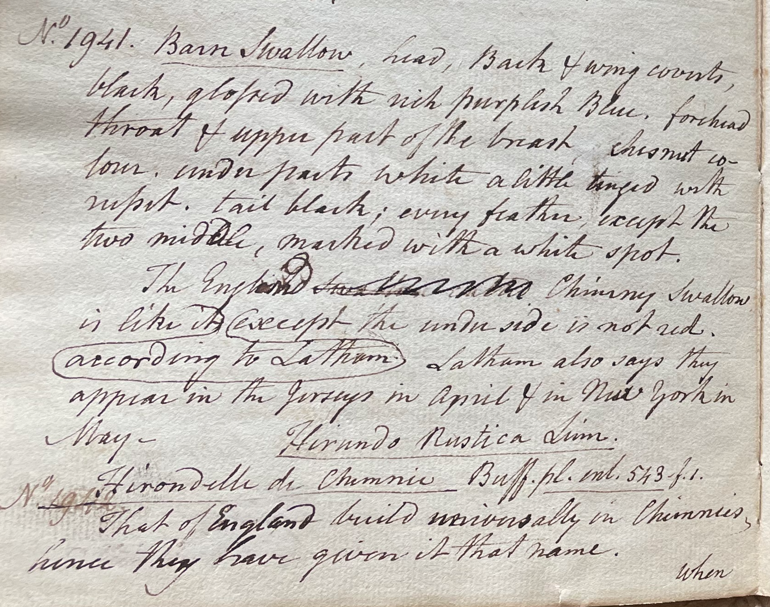 No. 1941. Barn Swallow, head, Back & wing coverts,
black, glossed with rich purplish Blue. forehead
throat & upper part of the breast chesnut co-
lour. under parts white a little tinged with
rufset. tail black; every feather, except the
two middle, marked with a white spot.
The England Chimney Swallow
is like it, except the under side is not red.
according to Latham. Latham also says they
appear in the Jerseys in April & in New York in
May –
Hirundo Rustica Linn.
Hirondelle de Chemnie Buff. pl. enl. 543. f. 1.
No. 1942
That of England build universally in Chimnies,
hence they have given it that name.
when